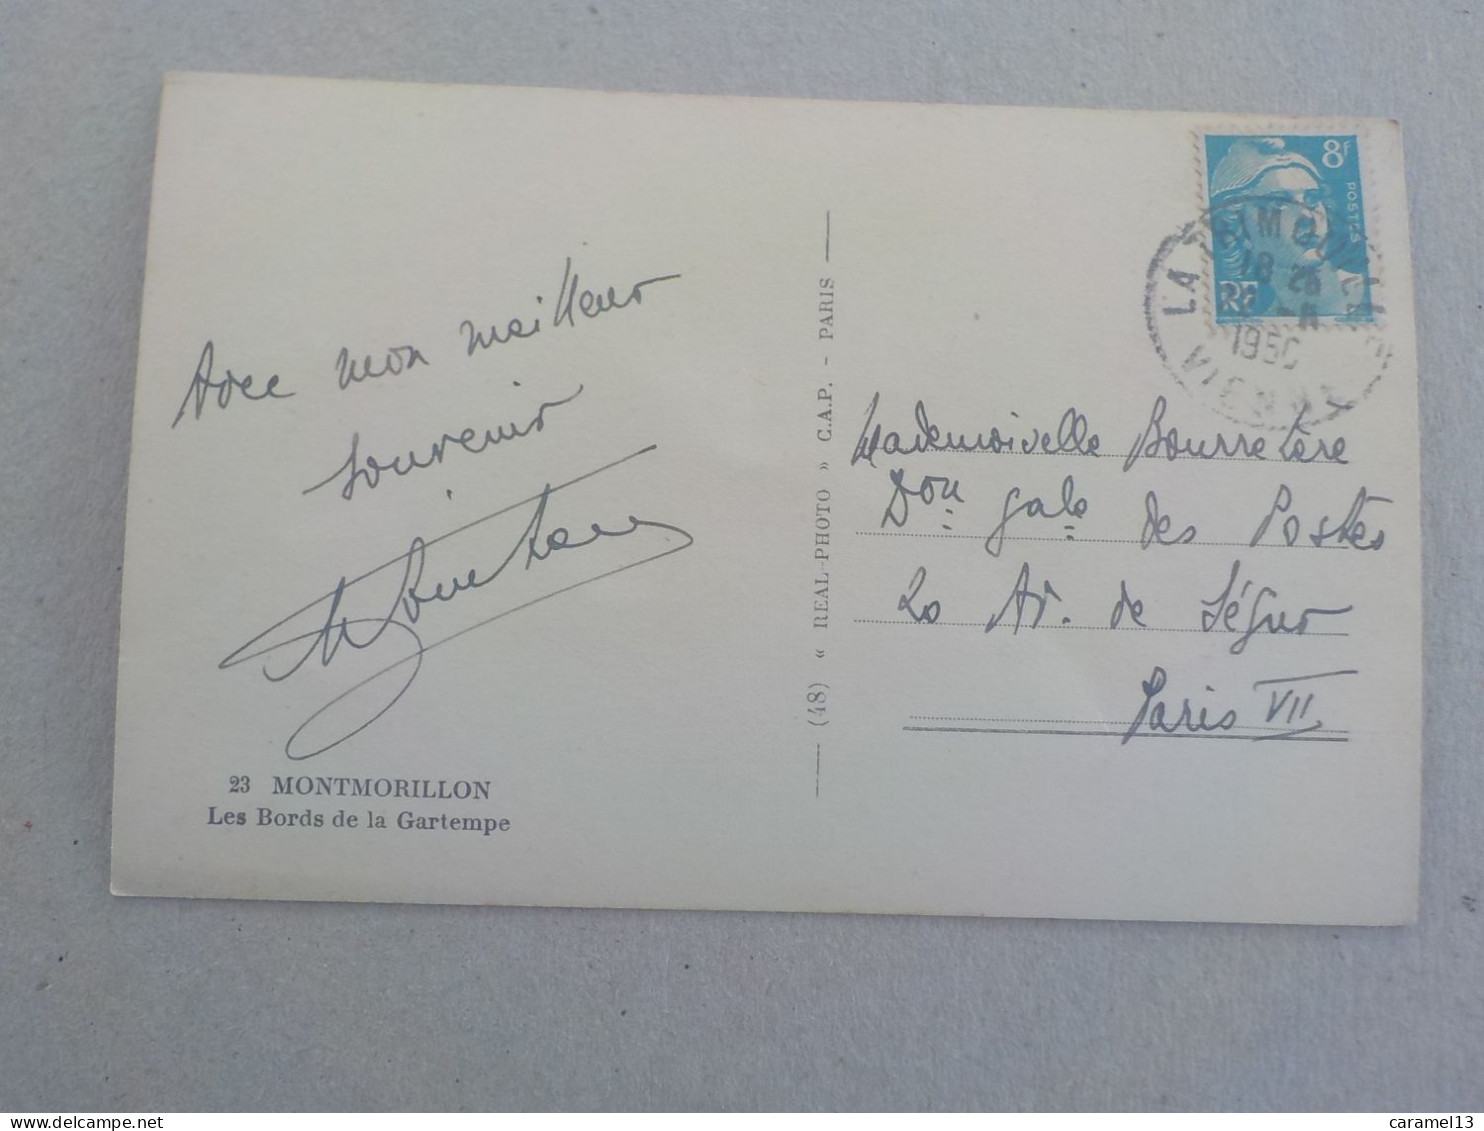 Avec mon meilleur
souvenir
23 MONTMORILLON
Les Bords de la Gartempe
(48) « REAL-PHOTO » C.A.P. - PARIS
8F
POSTES
RF
LA TRIMOUILLE
18 25
1950
VIENNE
Mademoiselle Bourretère
Don gale des Postes
20 Av. de Ségur
Paris VII
caramel13